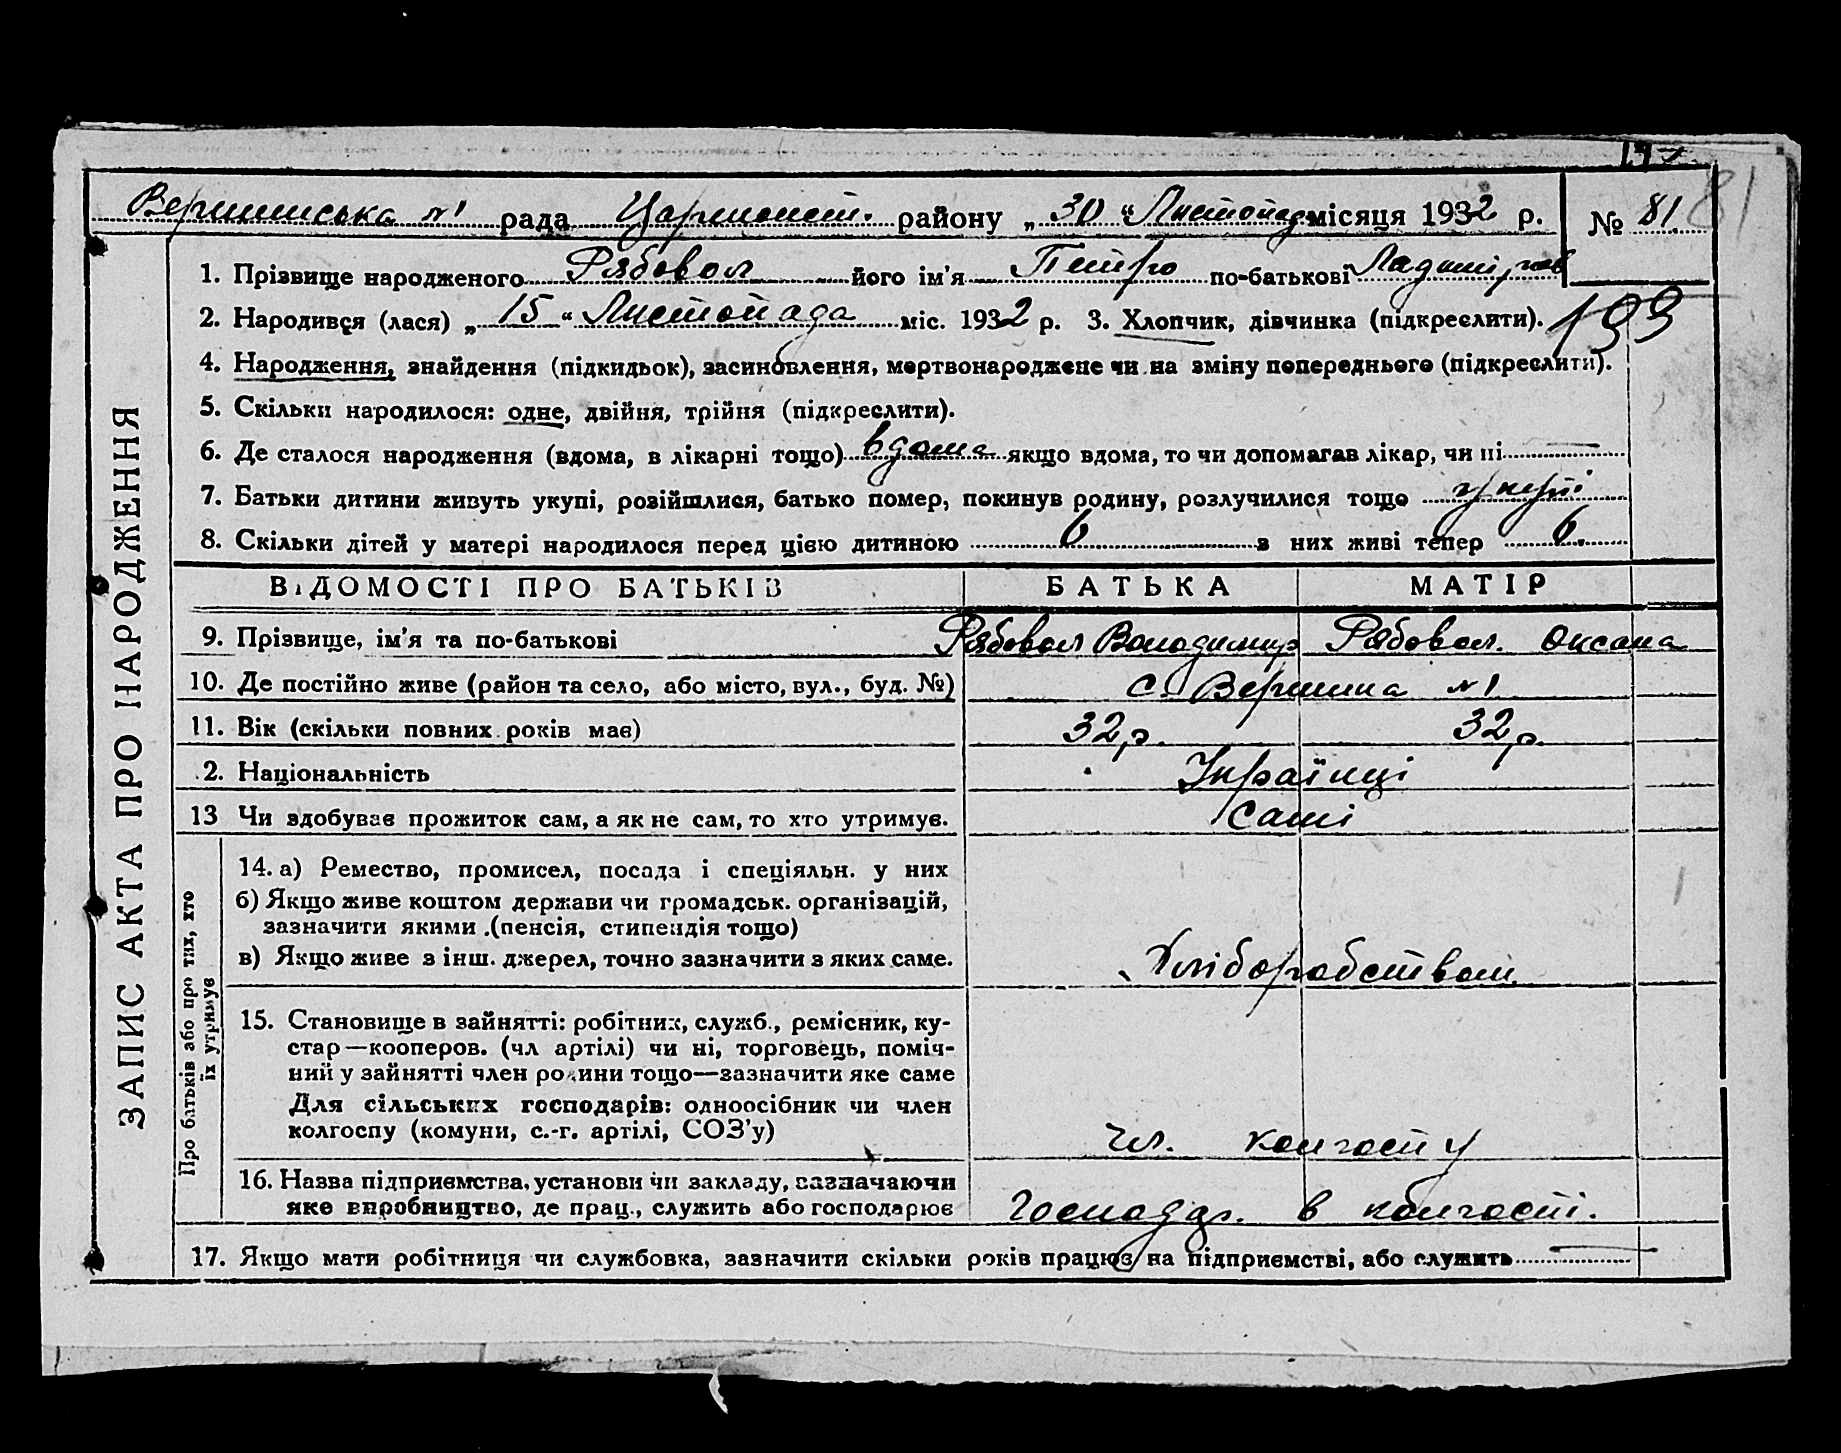 Вершинська №1 рада Царичанст. району „ 30 “ Листопада місяця 1932 р. № 81. 81
1. Прізвище народженого Рябовол його ім’я Петро по-батькові
2. Народився (лася) „ 15 “ Листопада міс. 1932 р. 3. Хлопчик, дівчинка (підкреслити). 199
4. Народження, знайдення (підкидьок), засиновлення, мертвонароджене чи на зміну попереднього (підкреслити).
5. Скільки народилося: одне, двійня, трійня (підкреслити).
6. Де сталося народження (вдома, в лікарні тощо) вдома якщо вдома, то чи допомагав лікар, чи ні —
7. Батьки дитини живуть укупі, розійшлися, батько помер, покинув родину, розлучилися тощо укупі
8. Скільки дітей у матері народилося перед цією дитиною 6 з них живі тепер 6.
ВІДОМОСТІ ПРО БАТЬКІВ БАТЬКА МАТІР
9. Прізвище, ім’я та по-батькові Рябовол Володимир Рябовол. Оксана
10. Де постійно живе (район та село, або місто, вул., буд. №) С. Вершина №1
11. Вік (скільки повних років має) 32 р. 32 р.
2. Національність Українці
13 Чи здобуває прожиток сам, а як не сам, то хто утримує. Самі
14. а) Ремество, промисел, посада і спеціяльн. у них
б) Якщо живе коштом держави чи громадськ. організацій,
зазначити якими (пенсія, стипендія тощо)
в) Якщо живе з інш. джерел, точно зазначити з яких саме. Хліборобством
15. Становище в зайнятті: робітник, служб., ремісник, ку-
стар—кооперов. (чл артілі) чи ні, торговець, поміч-
ний у зайнятті член родини тощо—зазначити яке саме
Для сільських господарів: одноосібник чи член
колгоспу (комуни, с.-г. артілі, СОЗ’у) чл. колгоспу
16. Назва підприємства, установи чи закладу, зазначаючи
яке виробництво, де прац., служить або господарює господар. в колгоспі.
17. Якщо мати робітниця чи службовка, зазначити скільки років працює на підприємстві, або служить —
ЗАПИС АКТА ПРО НАРОДЖЕННЯ
Про батьків або про тих, хто
їх утримує